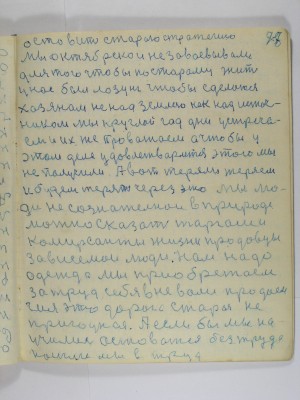 оставить старого стратегию
мы октябрской не завоевывали
для того чтобы по старому жить
у нас был лозунг чтобы сделатся
хозяином не над землею как над источ
ником мы круглой год дни
ем и их же провожаем а чтобы у
этом деле удовлетворится этого мы
не получили. А вот теряли теряем
и будем терять через это мы лю-
ди не сознателной в природе
можно сказать торгаши
комерсанты жизни продавцы
зависемой люди. нам надо
одежда мы приобретаем
за труд себя в не воли продаем
чия это дорога стара не
пригодная. А если бы мы на
училис остоватся без труда
погибли мы б труд